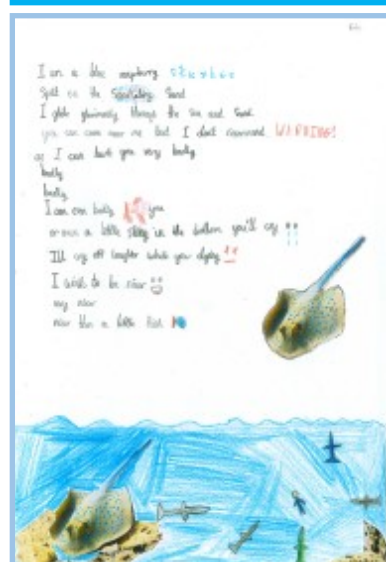 I am a blue raspberry
Spilt on the Sand
I glide gloriously through the sea and Sand
you can come near me but I don't recommend WARNING!
as I can hurt you very badly
badly
badly
I can even badly you
or even a little sting in the bottom you'll cry
I'll cry off laughter while your dying !!
I wish to be nicer
way nicer
nicer than a little fish